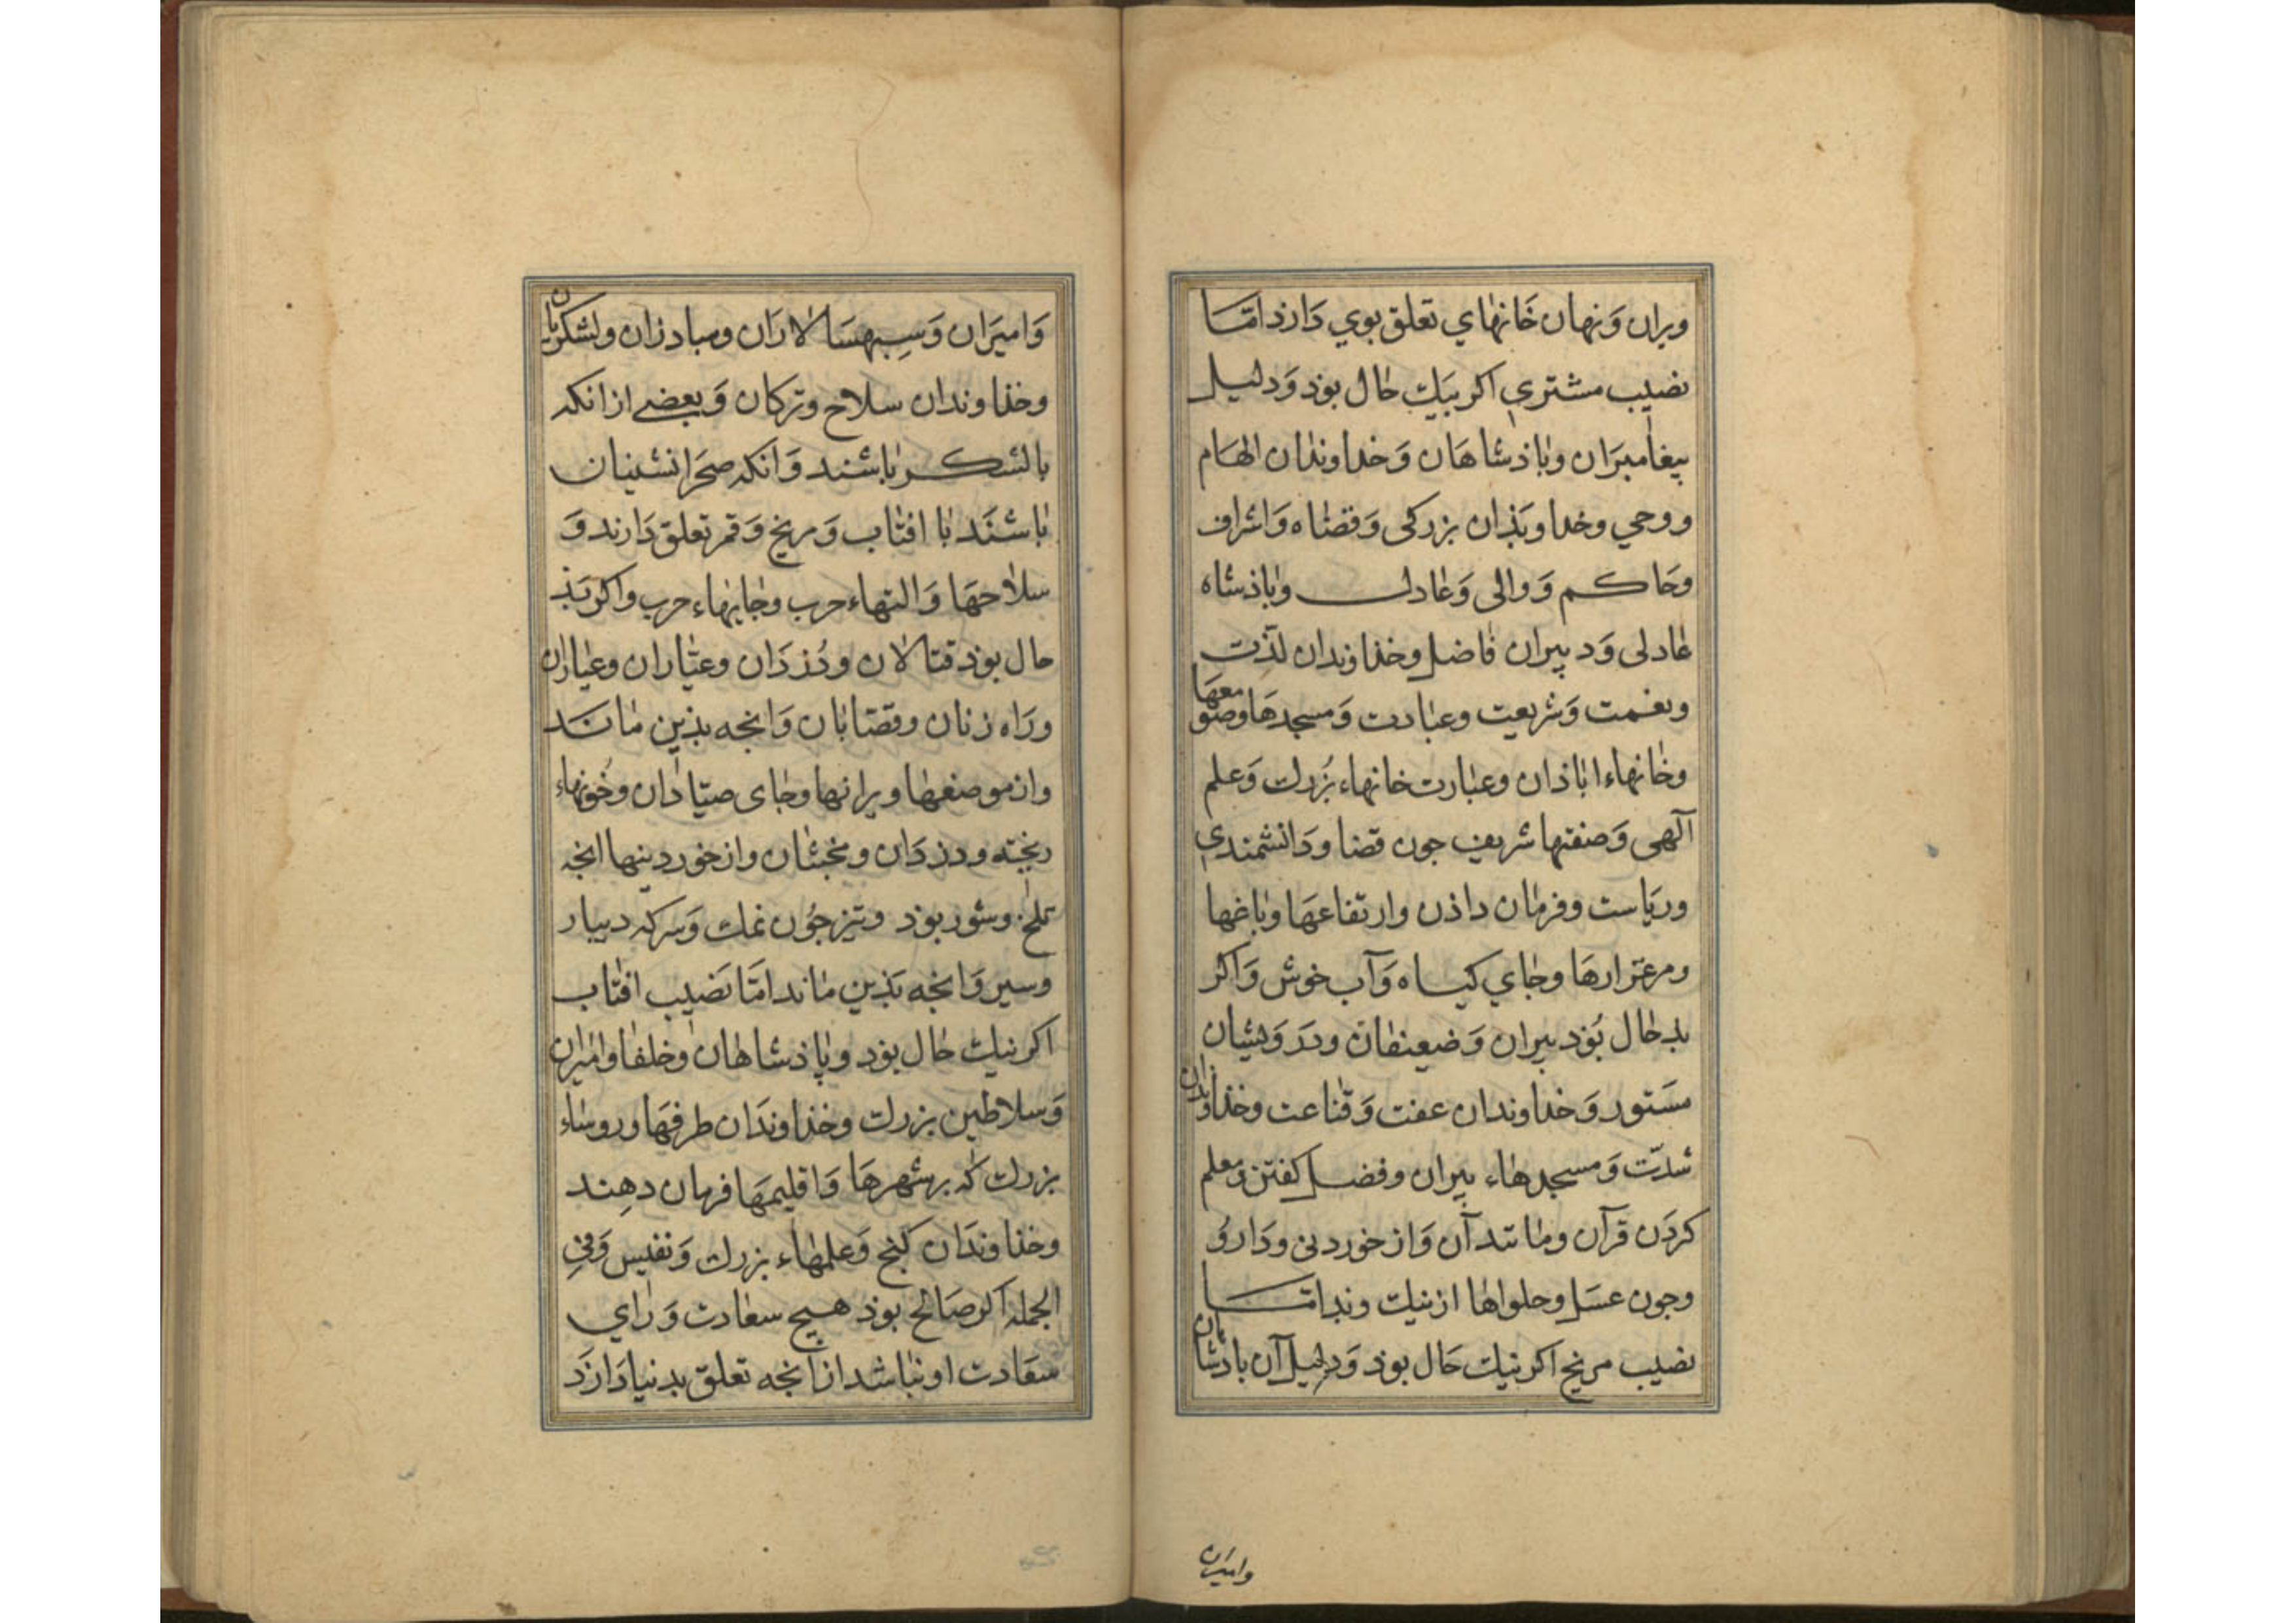 ویران وَنهان خَانهٰاي تعلق بوي دَارذ امّا
نصیب مشتري اکر نیك حٰال بوذ وَدلیل
پیغامبرَان وبٰاذشاهَان وَخداوندٰان الهَام
ووحي وخداوندَان بزرکی وَقضاه وَاشراف
وحَاکم وَوالی وَعٰادل وبٰاذشاه
عٰادلی وَدبیران فٰاضل وخذاوندان لذّت
ونعمت وَشریعت وعبٰادت وَمسجدهَا وصَومعهَا
وخٰانهاء ابٰاذان وعبٰارت خانهاء بُزرك وَعلم
آلهی وَصنعتها شریف جون قضا ودَانشمندي
وریَاست وفرمٰان داذن وارتفاعهَا وبٰاغها
ومرغزارهَا وجٰاي کیاه وَآب خوش وَاکر
بد حٰال بُوذ بیران وَضعیفٰان ودَروَیشان
مسَتور وَخداوندان عفت وَقنٰاعت وخذاوندان
شدّت وَمسجدهٰاء پیران وفضل کفتن وَمعلم
کردَن قرآن ومٰانند آن وَاز خوردنی ودَارُو
وجون عسَل وحلواهٰا از نیك وبد امّا
نصیب مریخ اکر نیك حَال بوذ وَدلیل آن بادشاهان
وامیران
وَامیرَان وَسِبهسَالٰارَان ومبادزان ولشکریان
وخذاوندان سلاح وترکان وَبعضے از انکه
بالشکر بٰاشند وَانکه صحَرانشینان
بٰاشنَد بٰا افتٰاب وَمریخ وَقمر تعلق دَارند وَ
سلاٰحهَا وَالتهاء حرب وجٰایهٰاء حرب واکر بَذ
حال بوذ قتالٰان ودُزدَان وعثٰاران وعیٰاران
ورَاه زنان وقصّابٰان وَانجه بذین مٰانَد
واز موضعهٰا ویرانها وجٰای صیّادَان وخُونهٰاء
ریخته ودزدَان ومخبثٰان واز خوردینها انجه
تلخ وشور بوذ وتیز جُون نمك وَسرکه دبیار
وسیر وَانجه بَذین مٰاند امّا نَصیب افتٰاب
اکر نیك حٰال بوذ وپٰاذشاهٰان وخلفٰا وامیران
وَسلاطین بزرك وخذاوندَان طرفهَا وروسٰاء
بزرك که بر شهرهَا وَاقلیمهَا فرمان دهِند
وخذاوندَان کنج وَعلمهٰاء بزرك وَنفیس وَفي
الجمله اکر صَالح بوذ هیچ سعٰادت وَرٰاي
سعَادت او نبٰاشد از انجه تعلق بدنیا دَارَذ